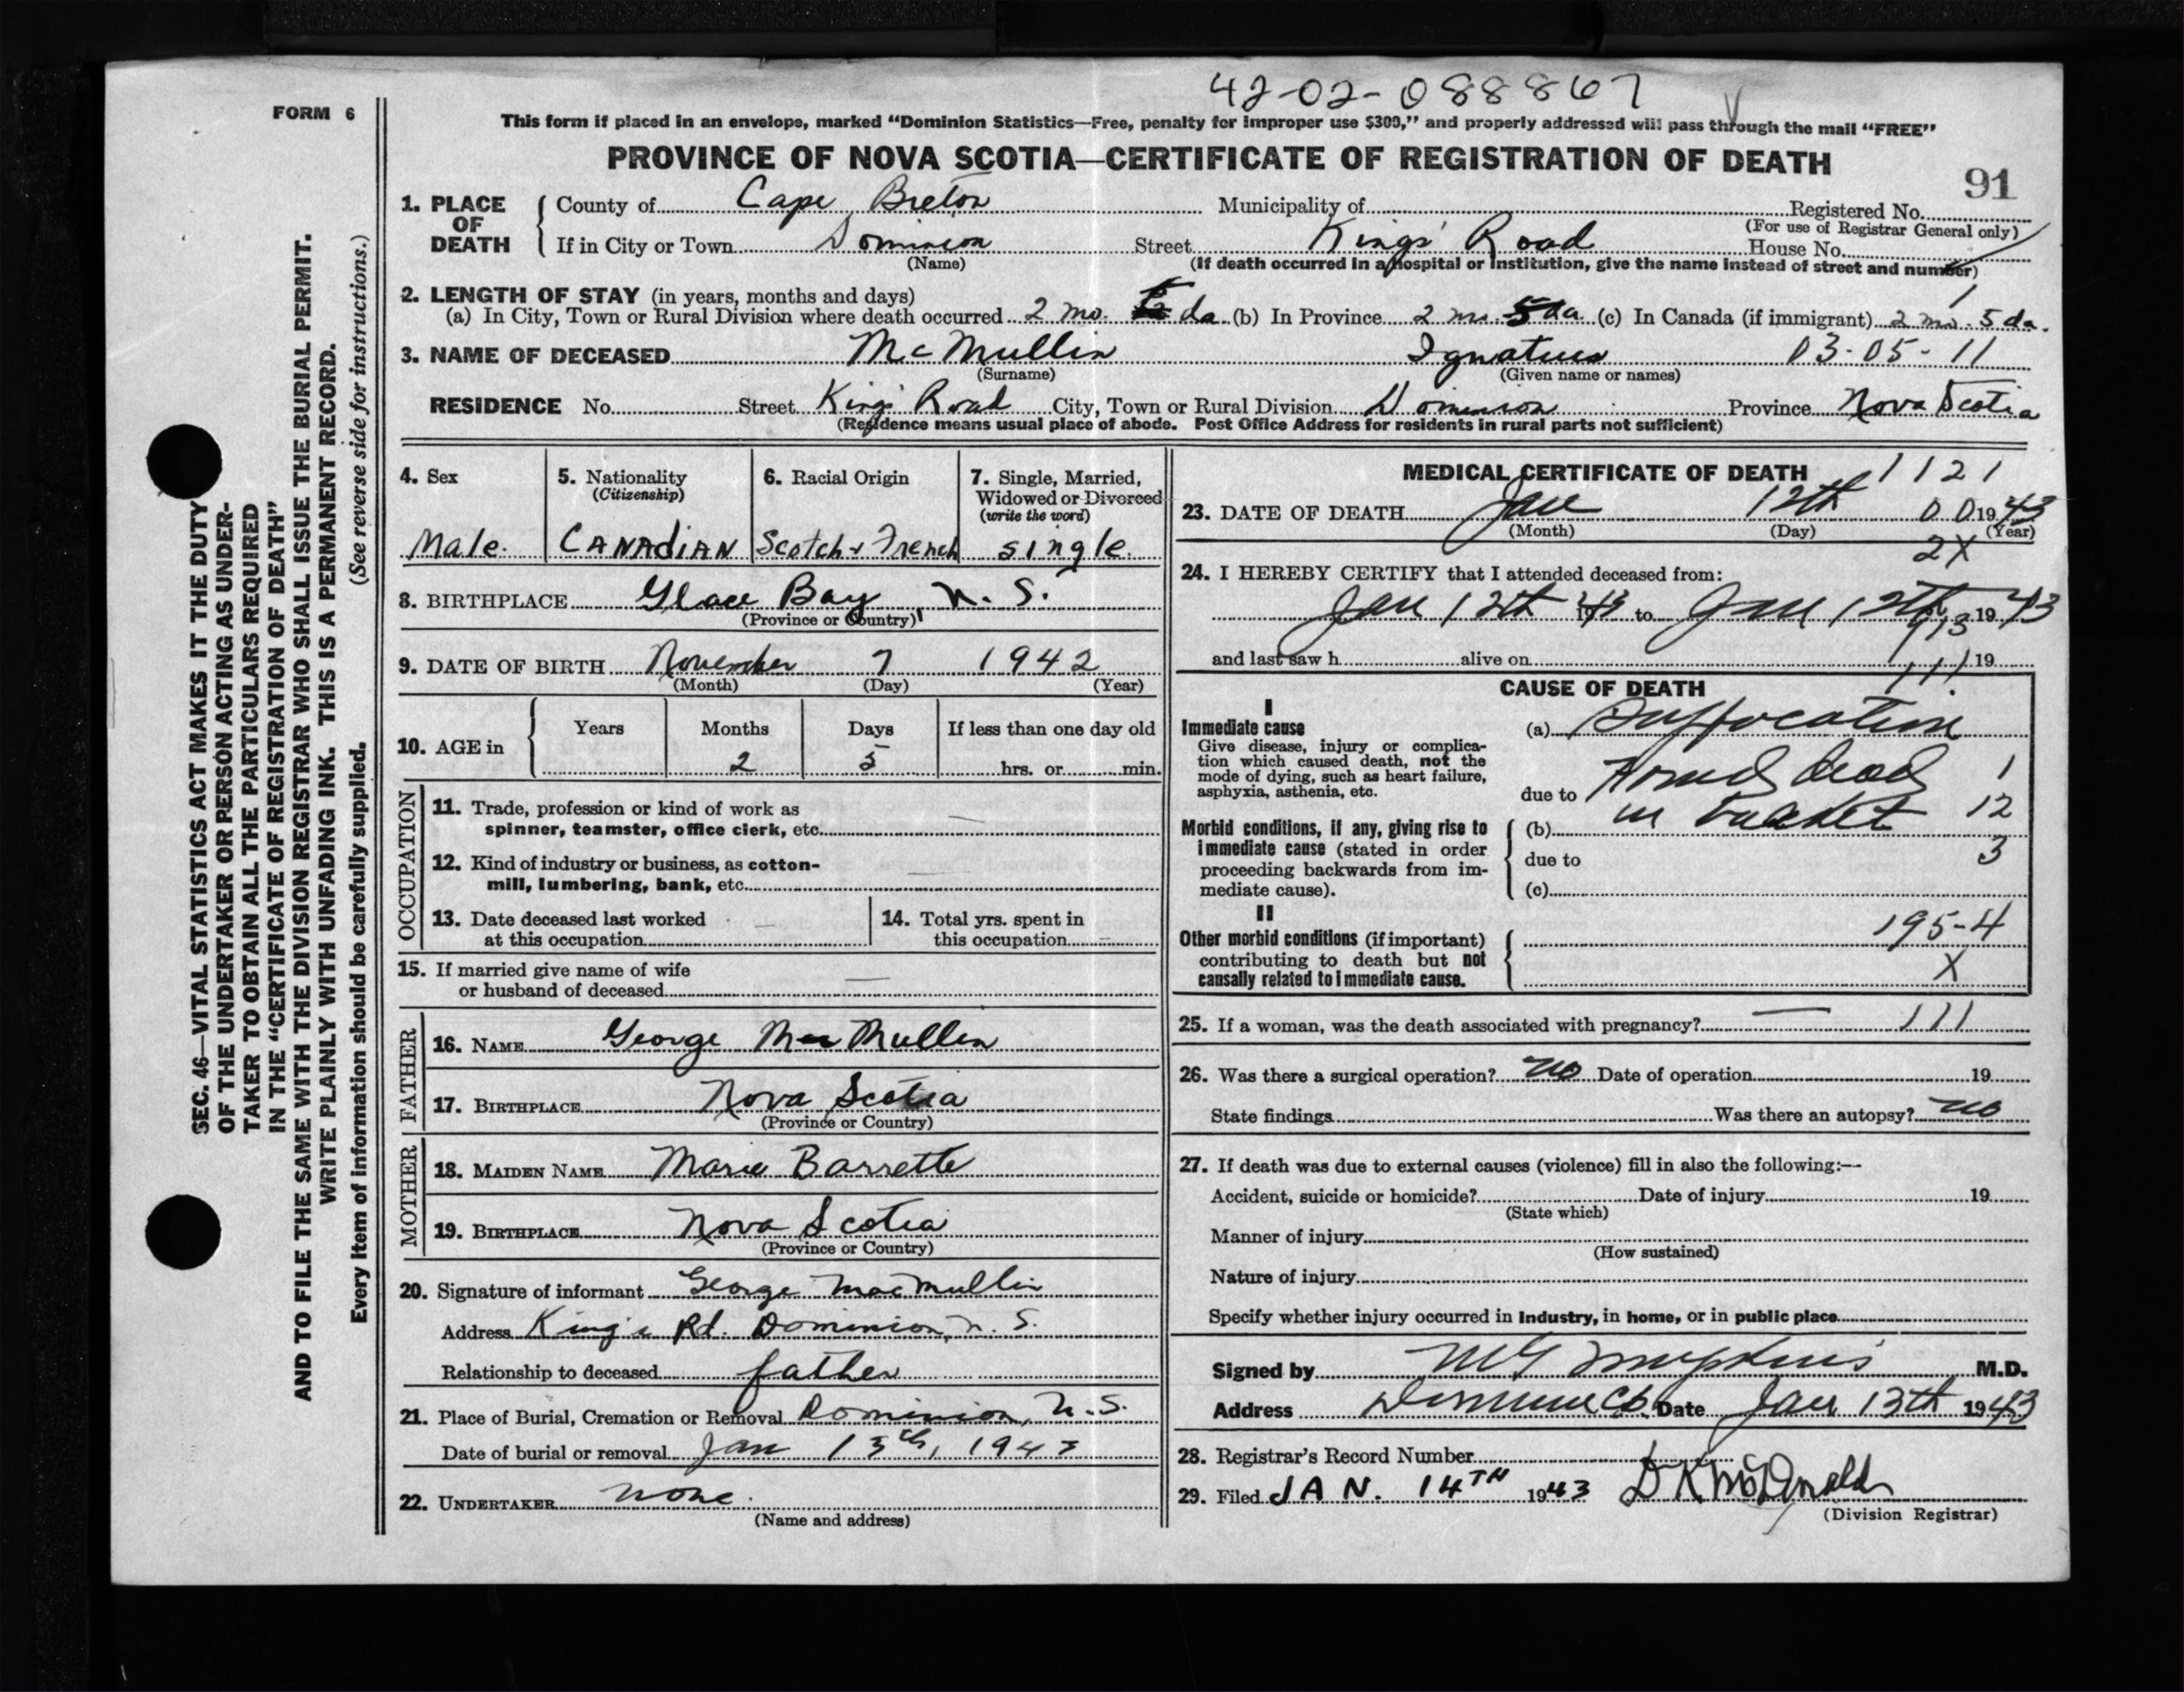 42-02-088867
FORM 6
This form if placed in an envelope, marked "Dominion Statistics—Free, penalty for improper use $300," and properly addressed will pass through the mail "FREE"
PROVINCE OF NOVA SCOTIA—CERTIFICATE OF REGISTRATION OF DEATH
91
1. PLACE OF DEATH
County of Cape Breton Municipality of Registered No.
(For use of Registrar General only)
If in City or Town Dominion Street Kings' Road House No.
(Name) (If death occurred in a hospital or institution, give the name instead of street and number)
2. LENGTH OF STAY (in years, months and days)
(a) In City, Town or Rural Division where death occurred 2 mo. 5 da (b) In Province 2 mo. 5 da (c) In Canada (if immigrant) 2 mo. 5 da.
3. NAME OF DECEASED McMullin Ignatius 03-05-11
(Surname) (Given name or names)
RESIDENCE No. Street King's Road City, Town or Rural Division Dominion Province Nova Scotia
(Residence means usual place of abode. Post Office Address for residents in rural parts not sufficient)
4. Sex
Male.
5. Nationality
(Citizenship)
CANADiAN
6. Racial Origin
Scotch & French
7. Single, Married,
Widowed or Divorced
(write the word)
single.
8. BIRTHPLACE Glace Bay, N. S.
(Province or Country)
9. DATE OF BIRTH November 7 1942
(Month) (Day) (Year)
10. AGE in
Years Months Days If less than one day old
2 5 hrs. or min.
OCCUPATION
11. Trade, profession or kind of work as
spinner, teamster, office clerk, etc.
12. Kind of industry or business, as cotton-
mill, lumbering, bank, etc.
13. Date deceased last worked
at this occupation
14. Total yrs. spent in
this occupation
15. If married give name of wife
or husband of deceased
FATHER
16. NAME George MacMullen
17. BIRTHPLACE Nova Scotia
(Province or Country)
MOTHER
18. MAIDEN NAME Marie Barrette
19. BIRTHPLACE Nova Scotia
(Province or Country)
20. Signature of informant George MacMullin
Address King's Rd. Dominion, N. S.
Relationship to deceased father
21. Place of Burial, Cremation or Removal Dominion, N.S.
Date of burial or removal Jan 13th, 1943
22. UNDERTAKER none.
(Name and address)
MEDICAL CERTIFICATE OF DEATH 1121
23. DATE OF DEATH Jan 12th 00 1943
(Month) (Day) (Year)
2X
24. I HEREBY CERTIFY that I attended deceased from:
Jan 12th 43 to Jan 12th 1943
913
and last saw h alive on 19
111
CAUSE OF DEATH
I
Immediate cause
Give disease, injury or complica-
tion which caused death, not the
mode of dying, such as heart failure,
asphyxia, asthenia, etc.
(a) Suffocation
due to Found dead 1
(b) in 12
due to 3
(c)
Morbid conditions, if any, giving rise to
immediate cause (stated in order
proceeding backwards from im-
mediate cause).
II
Other morbid conditions (if important)
contributing to death but not
causally related to immediate cause.
195-4
X
25. If a woman, was the death associated with pregnancy? — 111
26. Was there a surgical operation? no Date of operation 19
State findings Was there an autopsy? no
27. If death was due to external causes (violence) fill in also the following:—
Accident, suicide or homicide? Date of injury 19
(State which)
Manner of injury
(How sustained)
Nature of injury
Specify whether injury occurred in Industry, in home, or in public place
Signed by M.D.
Address Date Jan 13th 1943
28. Registrar's Record Number
29. Filed JAN. 14TH 1943 D K McDonald
(Division Registrar)
SEC. 46—VITAL STATISTICS ACT MAKES IT THE DUTY
OF THE UNDERTAKER OR PERSON ACTING AS UNDER-
TAKER TO OBTAIN ALL THE PARTICULARS REQUIRED
IN THE "CERTIFICATE OF REGISTRATION OF DEATH"
AND TO FILE THE SAME WITH THE DIVISION REGISTRAR WHO SHALL ISSUE THE BURIAL PERMIT.
WRITE PLAINLY WITH UNFADING INK. THIS IS A PERMANENT RECORD.
Every item of information should be carefully supplied. (See reverse side for instructions.)